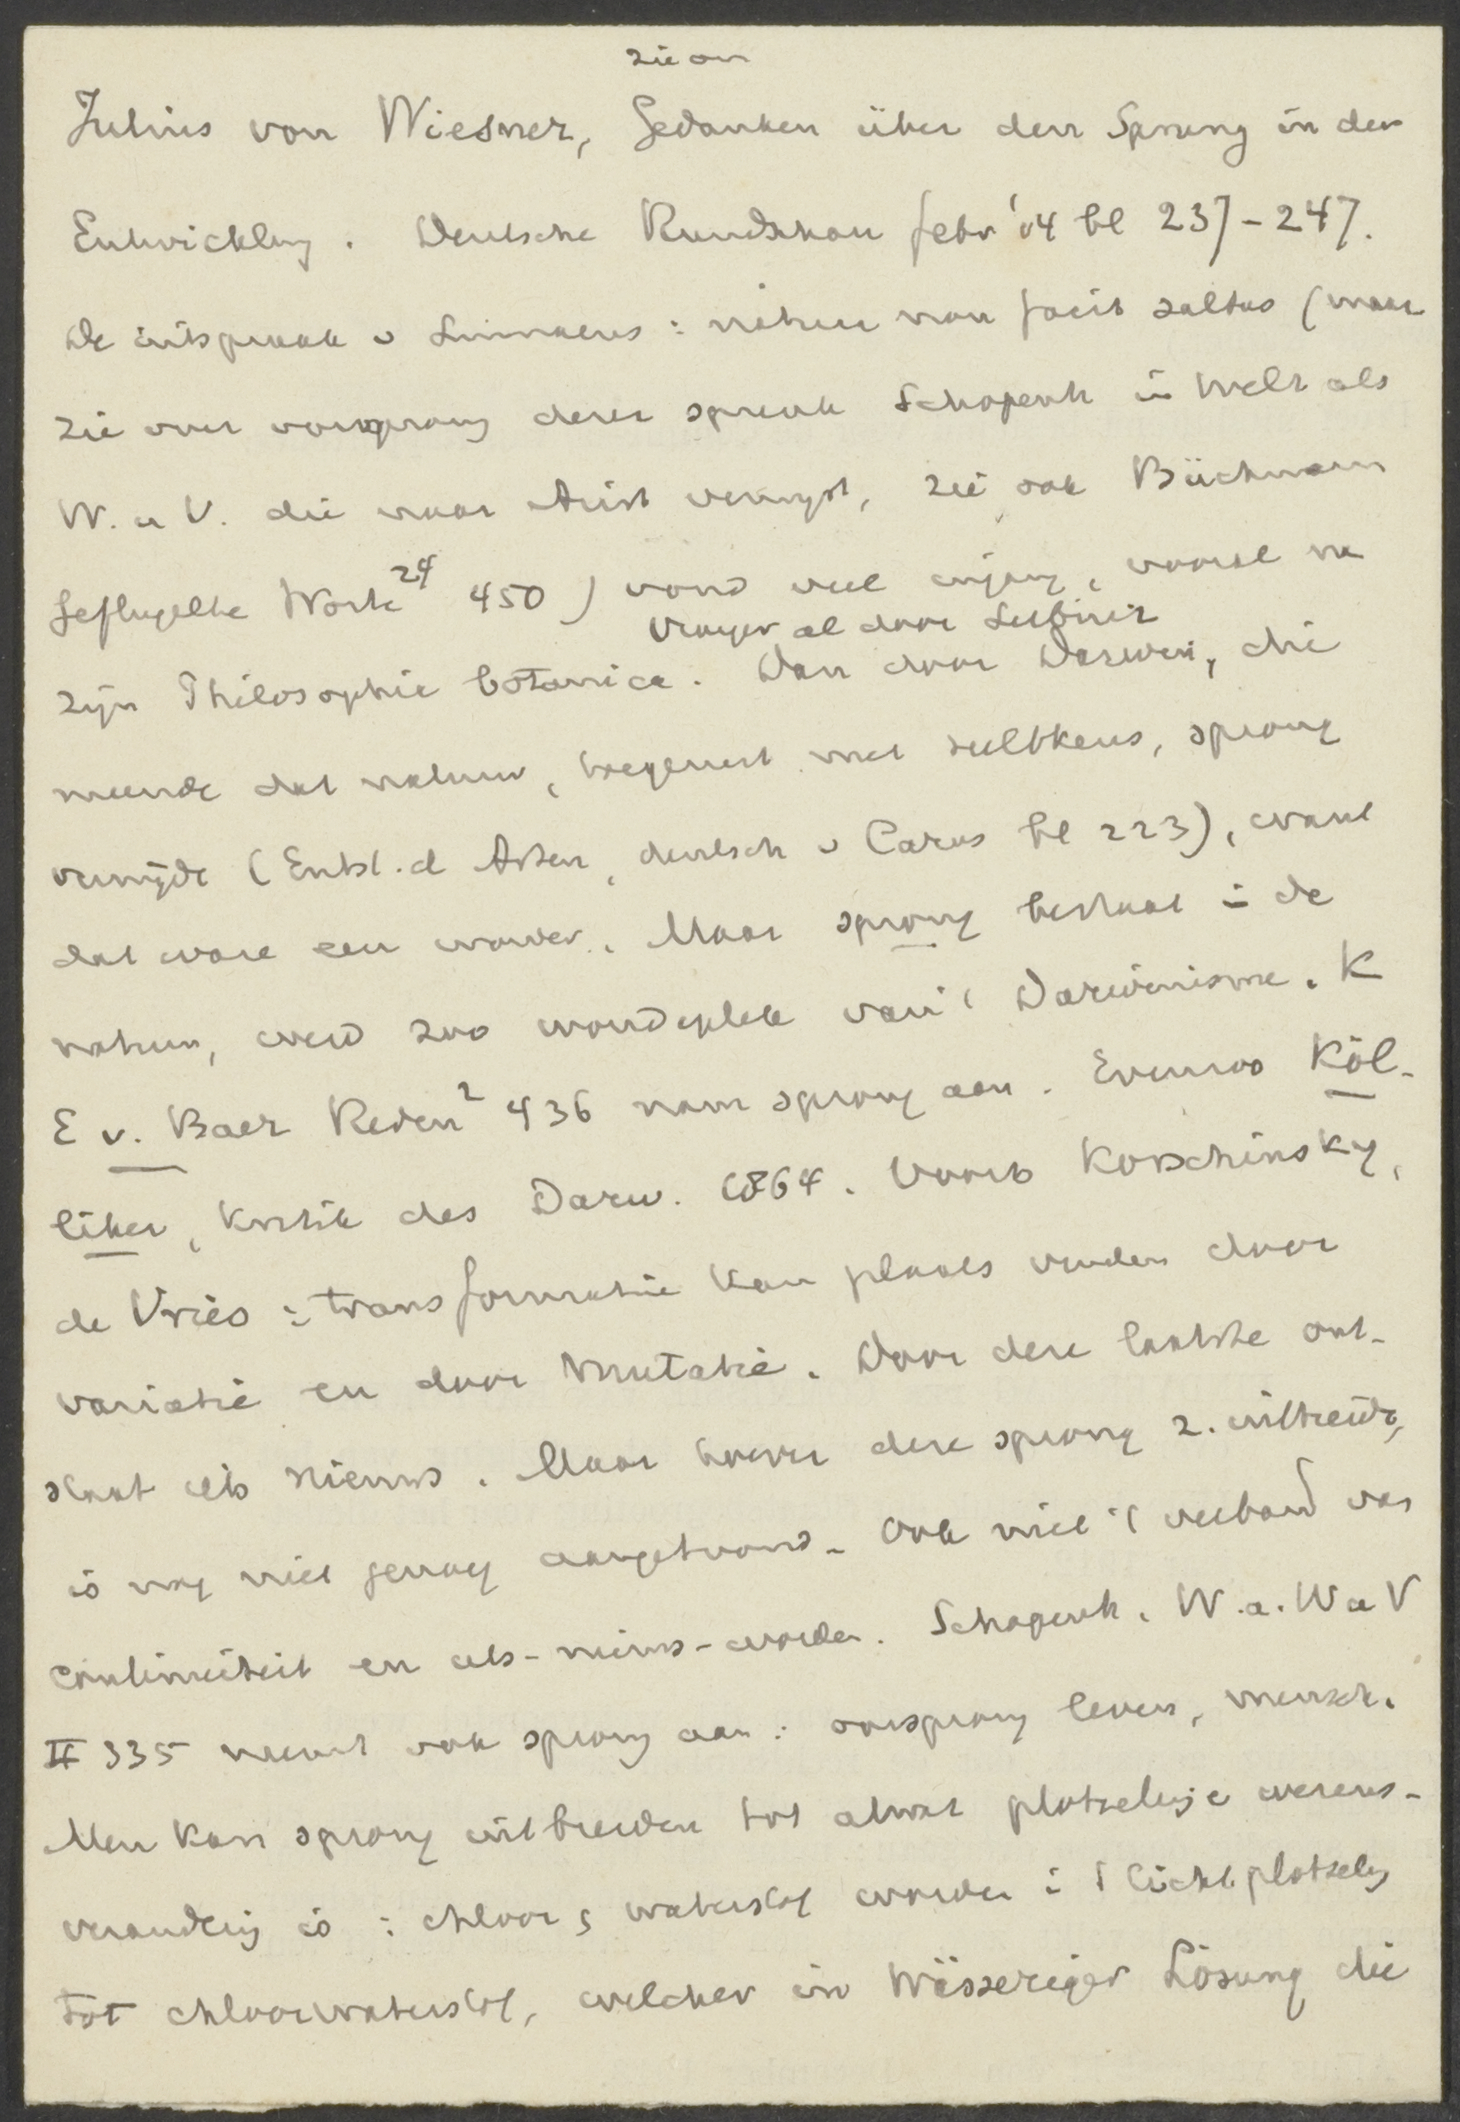 zie om
Julius von Wiesner, Gedanken über den Sprung in der
Entwicklung. Deutsche Rundschau febr '04 bl 237-247.
De uitspraak v Linnaeus: natura non facit saltus (maar
zie over oorsprong dezer spreuk Schopenh in Welt als
W. u V. die naar Arist verwijst, zie ook Büchmann
Geflügelte Worte 24 450) vond veel ingang, vooral na
Vroeger al door Leibniz
zijn Philosophia botanica. Dan door Darwin, die
meende dat natuur, toegerust met seltkeus, sprong
vermijdt (Entst. d Arten, deutsch v Carus bl 223), want
dat ware een wonder. Maar sprong bestaat in de
natuur, werd zoo wondeplek van 't Darwinisme. K
E v. Baer Reden 2 436 nam sprong aan. Evenzoo Köl-
liker, Kritik des Darw. 1864. Voorts Korschinsky,
de Vries: transformatie kan plaats vinden door
variatie en door mutatie. Door deze laatste ont-
staat iets nieuws. Maar hoever deze sprong z. uitbreidt,
is nog niet genoeg aangetoond. Ook niet 't verband van
continuiteit en iets-nieuws-worden. Schopenh. W. a. W u V
II 335 neemt ook sprong aan: oorsprong leven, mensch.
Men kan sprong uitbreiden tot alwat plotselinge wezens-
verandering is: chloor & waterstof worden in 't licht plotseling
tot chloorwaterstof, welcher in wässeriger Lösung die